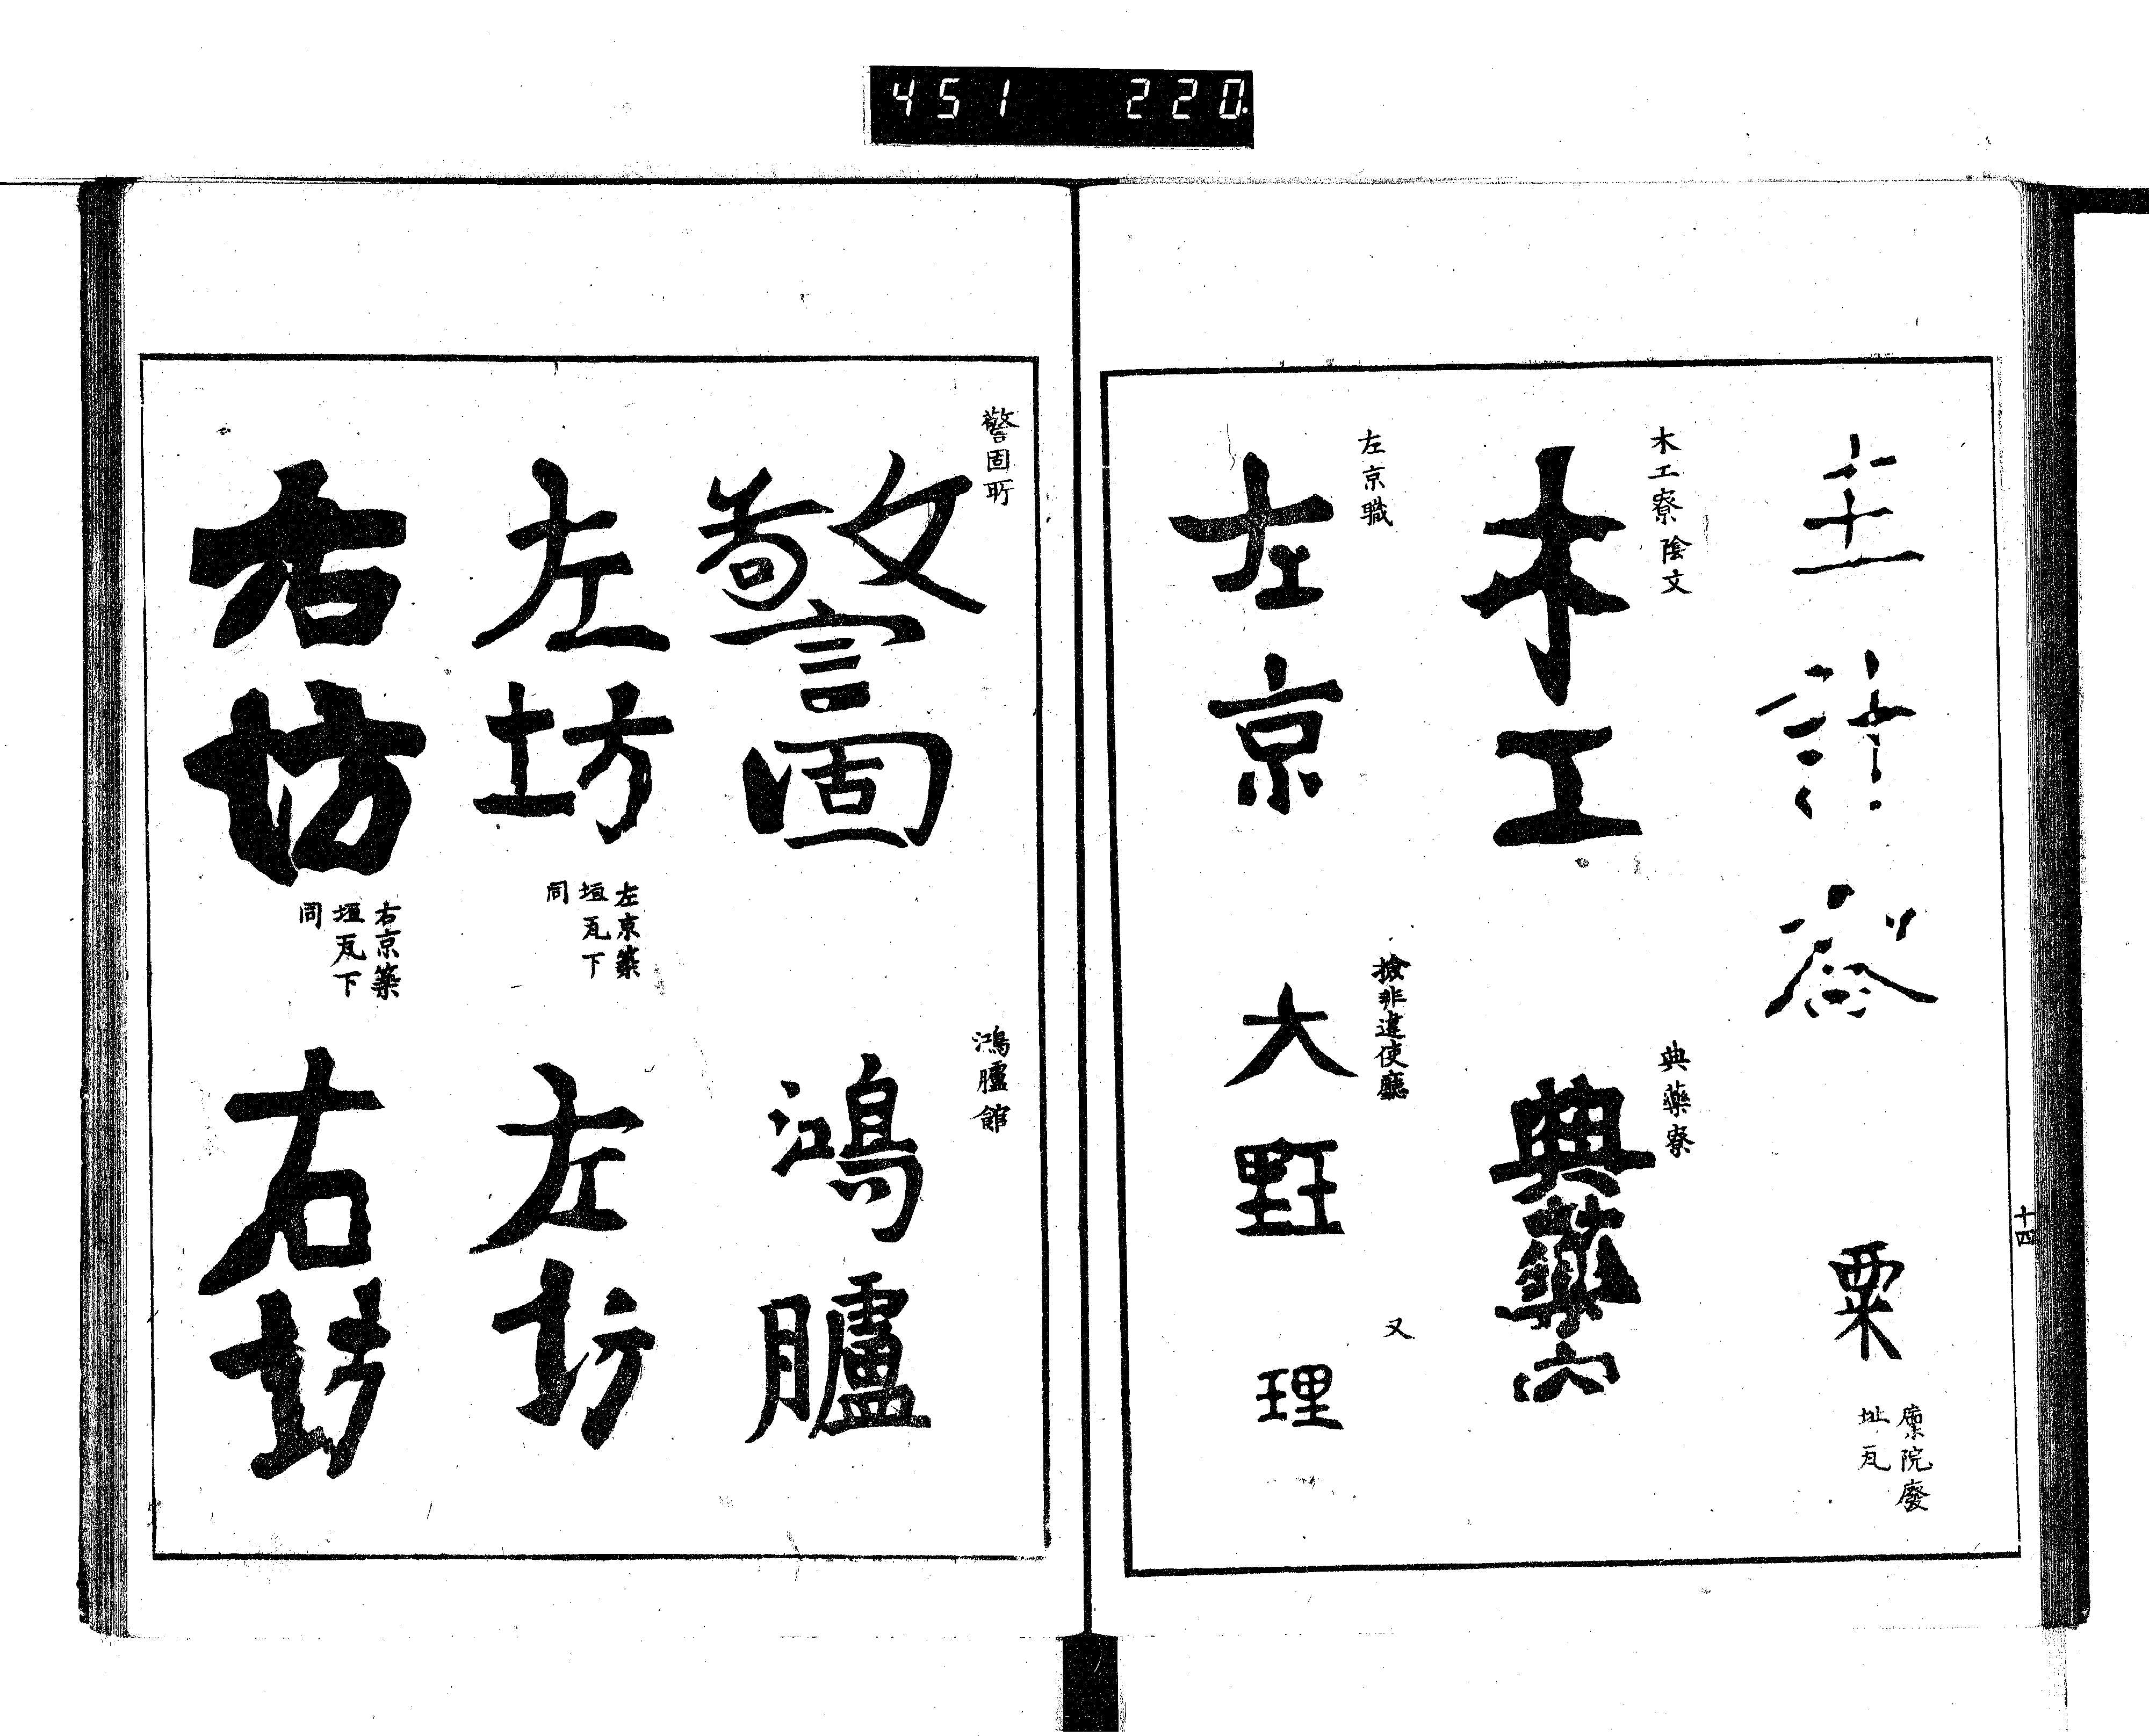 451 220
主計寮
粟
廩院廢
址瓦
十四
木工寮陰文
木工
典藥寮
典藥六
左京職
左京
撿非違使廳
大
理
又
理
警固所
警固
鴻臚館
鴻臚
左坊
左京築
垣瓦下
同
左坊
右坊
右京築
垣瓦下
同
右坊